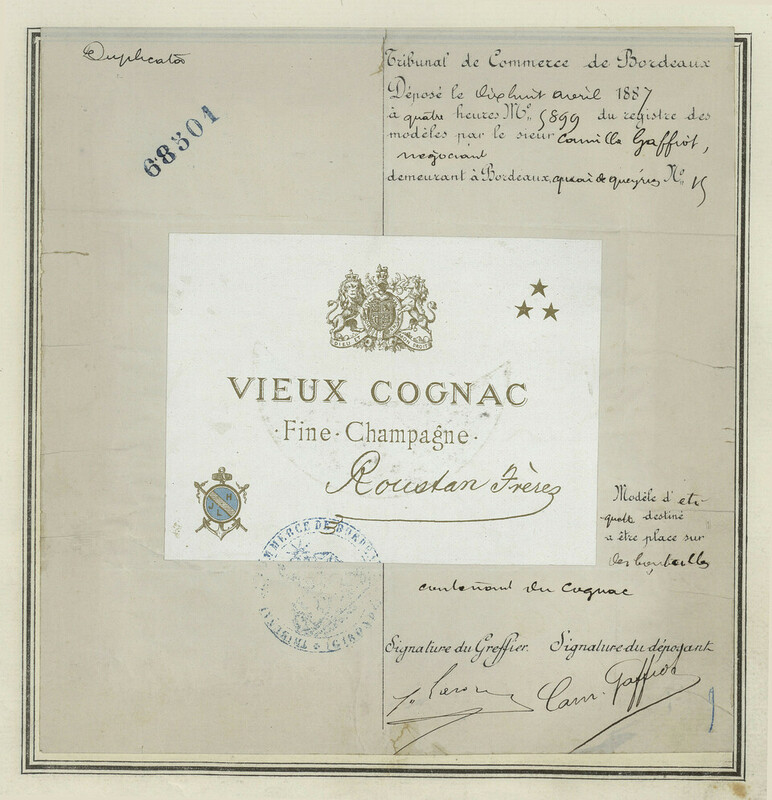 Duplicata
68301
Tribunal de Commerce de Bordeaux
Déposé le dix huit avril 1887
à quatre heures No. 5899 du registre des
modèles par le sieur Camille Gaffiot,
négociant
demeurant à Bordeaux, quai de queyries No. 15
DIEU ET MON DROIT
VIEUX COGNAC
·Fine·Champagne·
Roustan Frères
J H L
COMMERCE DE BORDEAUX
TRIBUNAL
(GIRONDE)
Modèle d'eti-
quette destiné
a être place sur
des bouteilles
contenant du Cognac
Signature du Greffier. Signature du déposant
Cam. Gaffiot